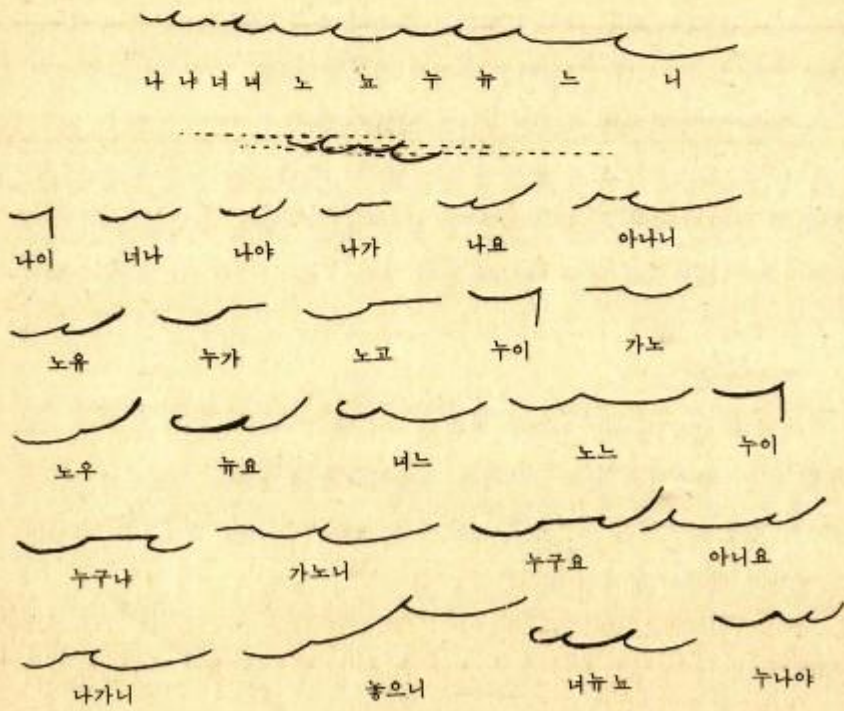 나 냐 너 녀 노 뇨 누 뉴 느 니
나이 너나 나야 나가 나요 아나니
노유 누가 노고 누이 가노
노우 뉴요 녀느 노느 누이
누구냐 가노니 누구요 아니요
나가니 놓으니 녀뉴뇨 누나야